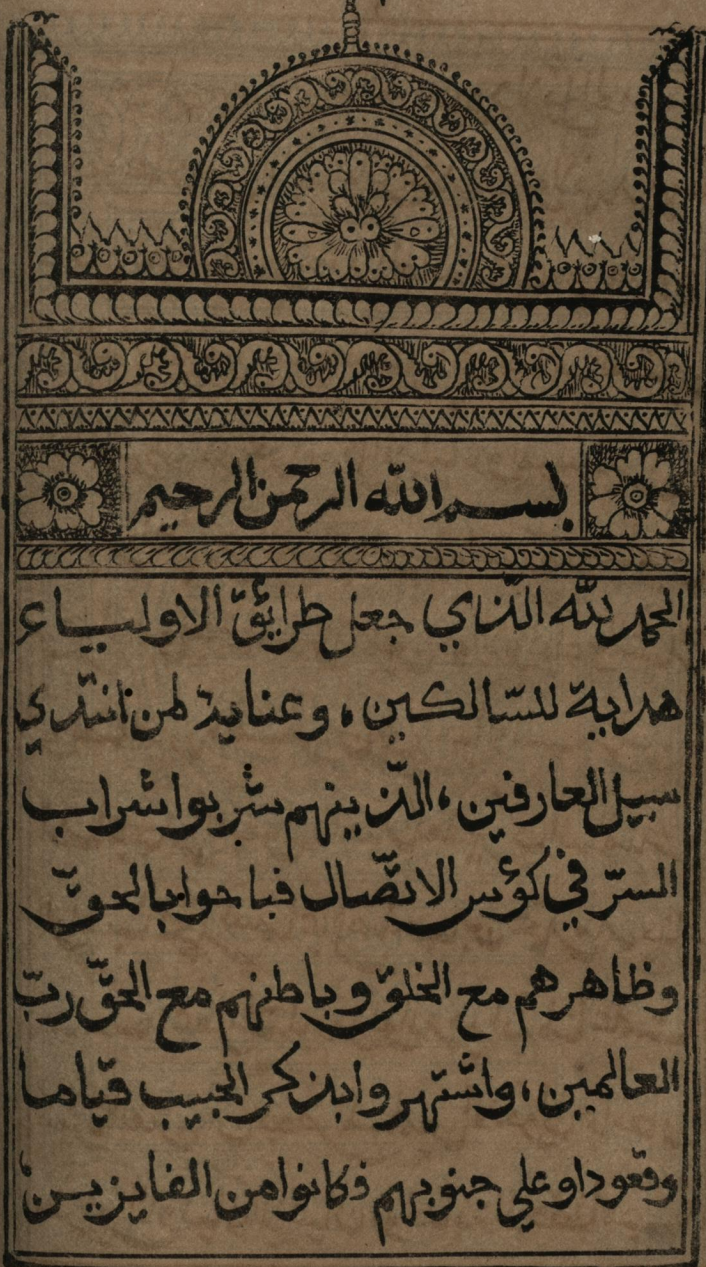 بسم الله الرحمن الرحيم
الحمد لله الّذي جعل طرايق الاولياء
هداية للسّالكين، وعناية لمن انتدي
سبيل العارفين، الّذينهم شربوا شراب
السرّ في كؤس الاتّصال فباحوا بالحقّ
وظاهرهم مع الخلق وباطنهم مع الحقّ ربّ
العالمين، واشتهروا بذكر الحبيب قياما
وقعودا وعلي جنوبهم فكانوا من الفايزين